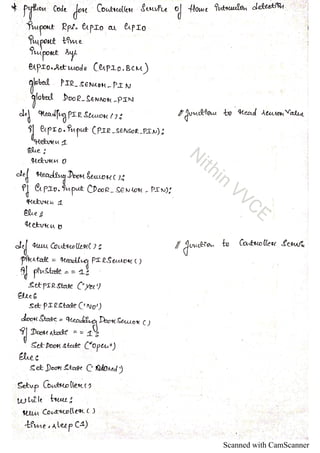 * Python Code for Controller Service of Home Intrusion detection
Import RPi.GPIO as GPIO
Import time
Import sys
GPIO.setmode (GPIO.BCM)
global PIR_SENSOR_PIN
global DOOR_SENSOR_PIN
def readingPIRSensor(): // function to read sensor value
If GPIO.Input (PIR_SENSOR_PIN):
return 1
Else:
return 0
def readingDoorSensor():
If GPIO.Input (DOOR_SENSOR_PIN):
return 1
Else:
return 0
def runController(): // function to Controller Service
pinstate = readingPIRSensor()
If pinState == 1:
setPIRState ('yes')
Else:
set PIRState ('No')
doorState = readingDoorSensor()
If DoorState == 1:
Set Door State ("Open")
Else:
Set Door State ('Closed')
Setup Controller()
While true:
run Controller()
time.sleep (1)
Nithin VVCE
Scanned with CamScanner